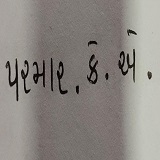 પરમાર. કે. એ.